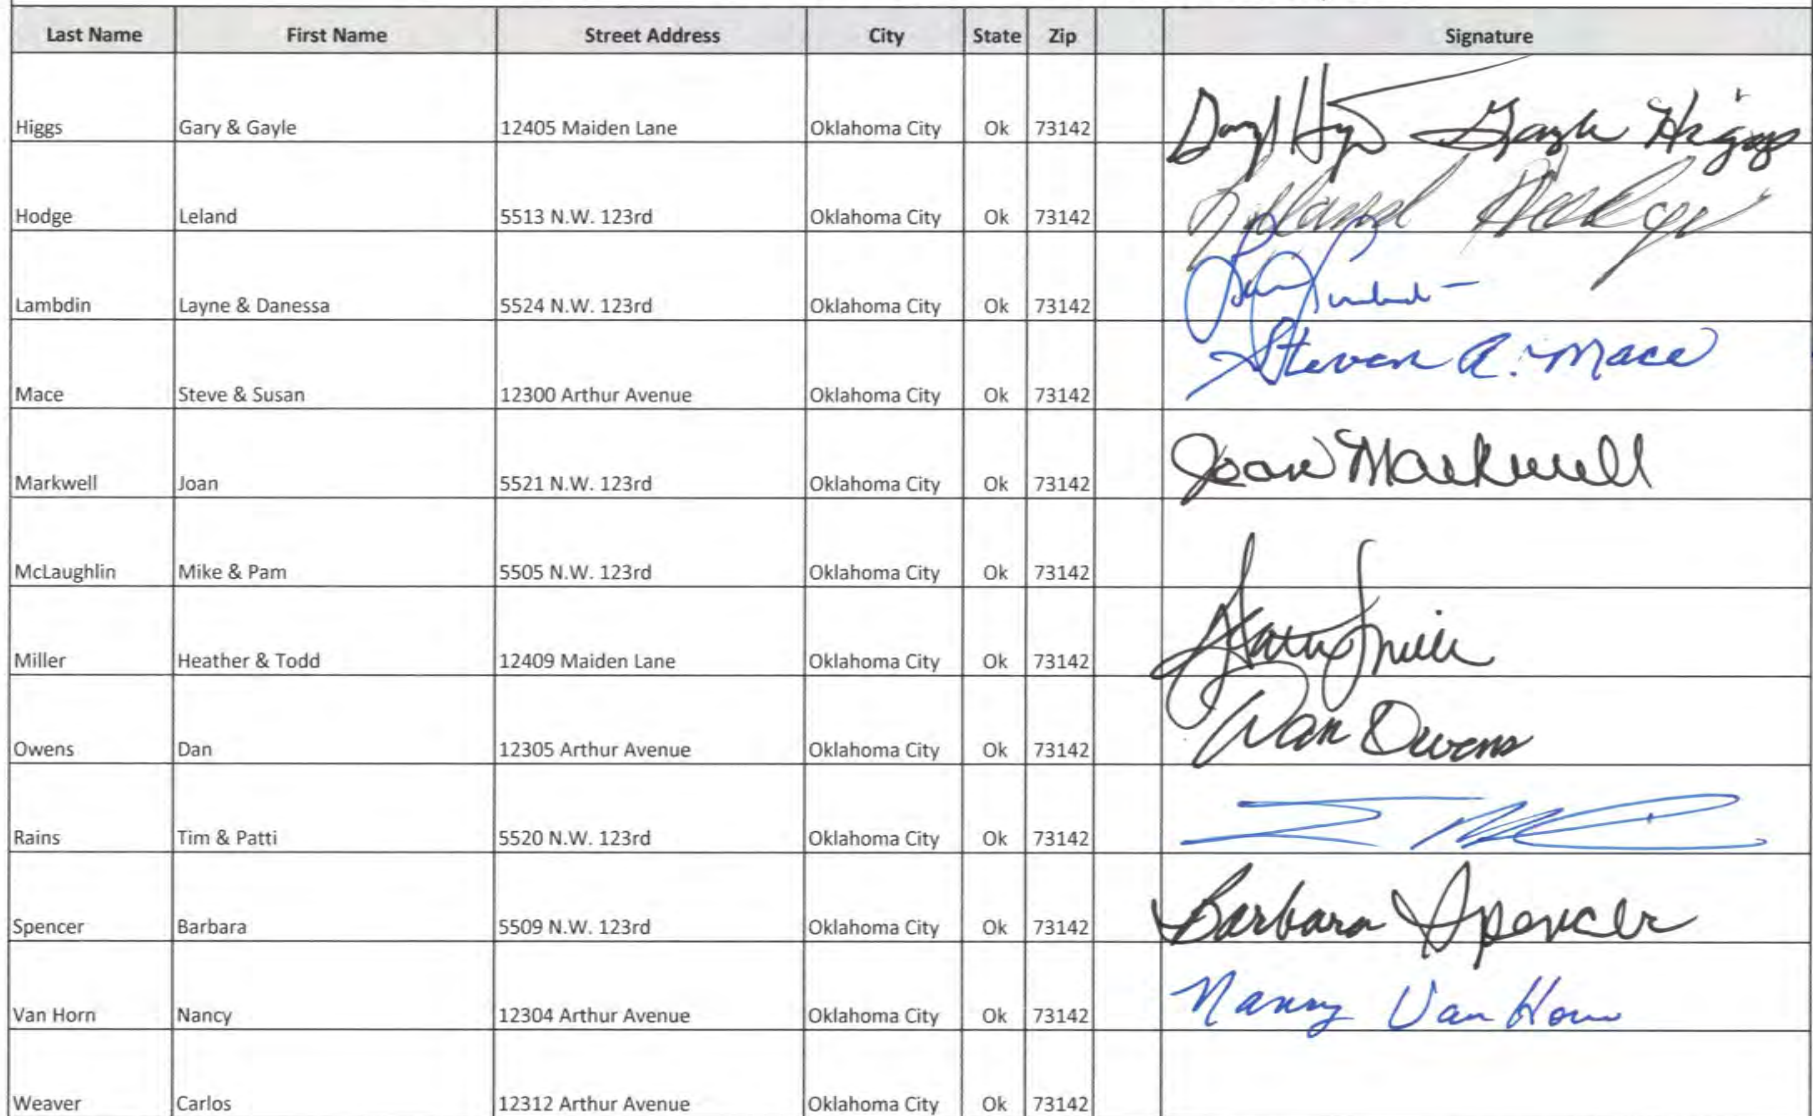 Last Name First Name Street Address City State Zip Signature
Higgs Gary & Gayle 12405 Maiden Lane Oklahoma City Ok 73142 Gayle Higgs
Hodge Leland 5513 N.W. 123rd Oklahoma City Ok 73142 Leland Hodge
Lambdin Layne & Danessa 5524 N.W. 123rd Oklahoma City Ok 73142
Mace Steve & Susan 12300 Arthur Avenue Oklahoma City Ok 73142 Steven A. Mace
Markwell Joan 5521 N.W. 123rd Oklahoma City Ok 73142 Joan Markwell
McLaughlin Mike & Pam 5505 N.W. 123rd Oklahoma City Ok 73142
Miller Heather & Todd 12409 Maiden Lane Oklahoma City Ok 73142
Owens Dan 12305 Arthur Avenue Oklahoma City Ok 73142 Dan Owens
Rains Tim & Patti 5520 N.W. 123rd Oklahoma City Ok 73142
Spencer Barbara 5509 N.W. 123rd Oklahoma City Ok 73142 Barbara Spencer
Van Horn Nancy 12304 Arthur Avenue Oklahoma City Ok 73142 Nancy Van Horn
Weaver Carlos 12312 Arthur Avenue Oklahoma City Ok 73142